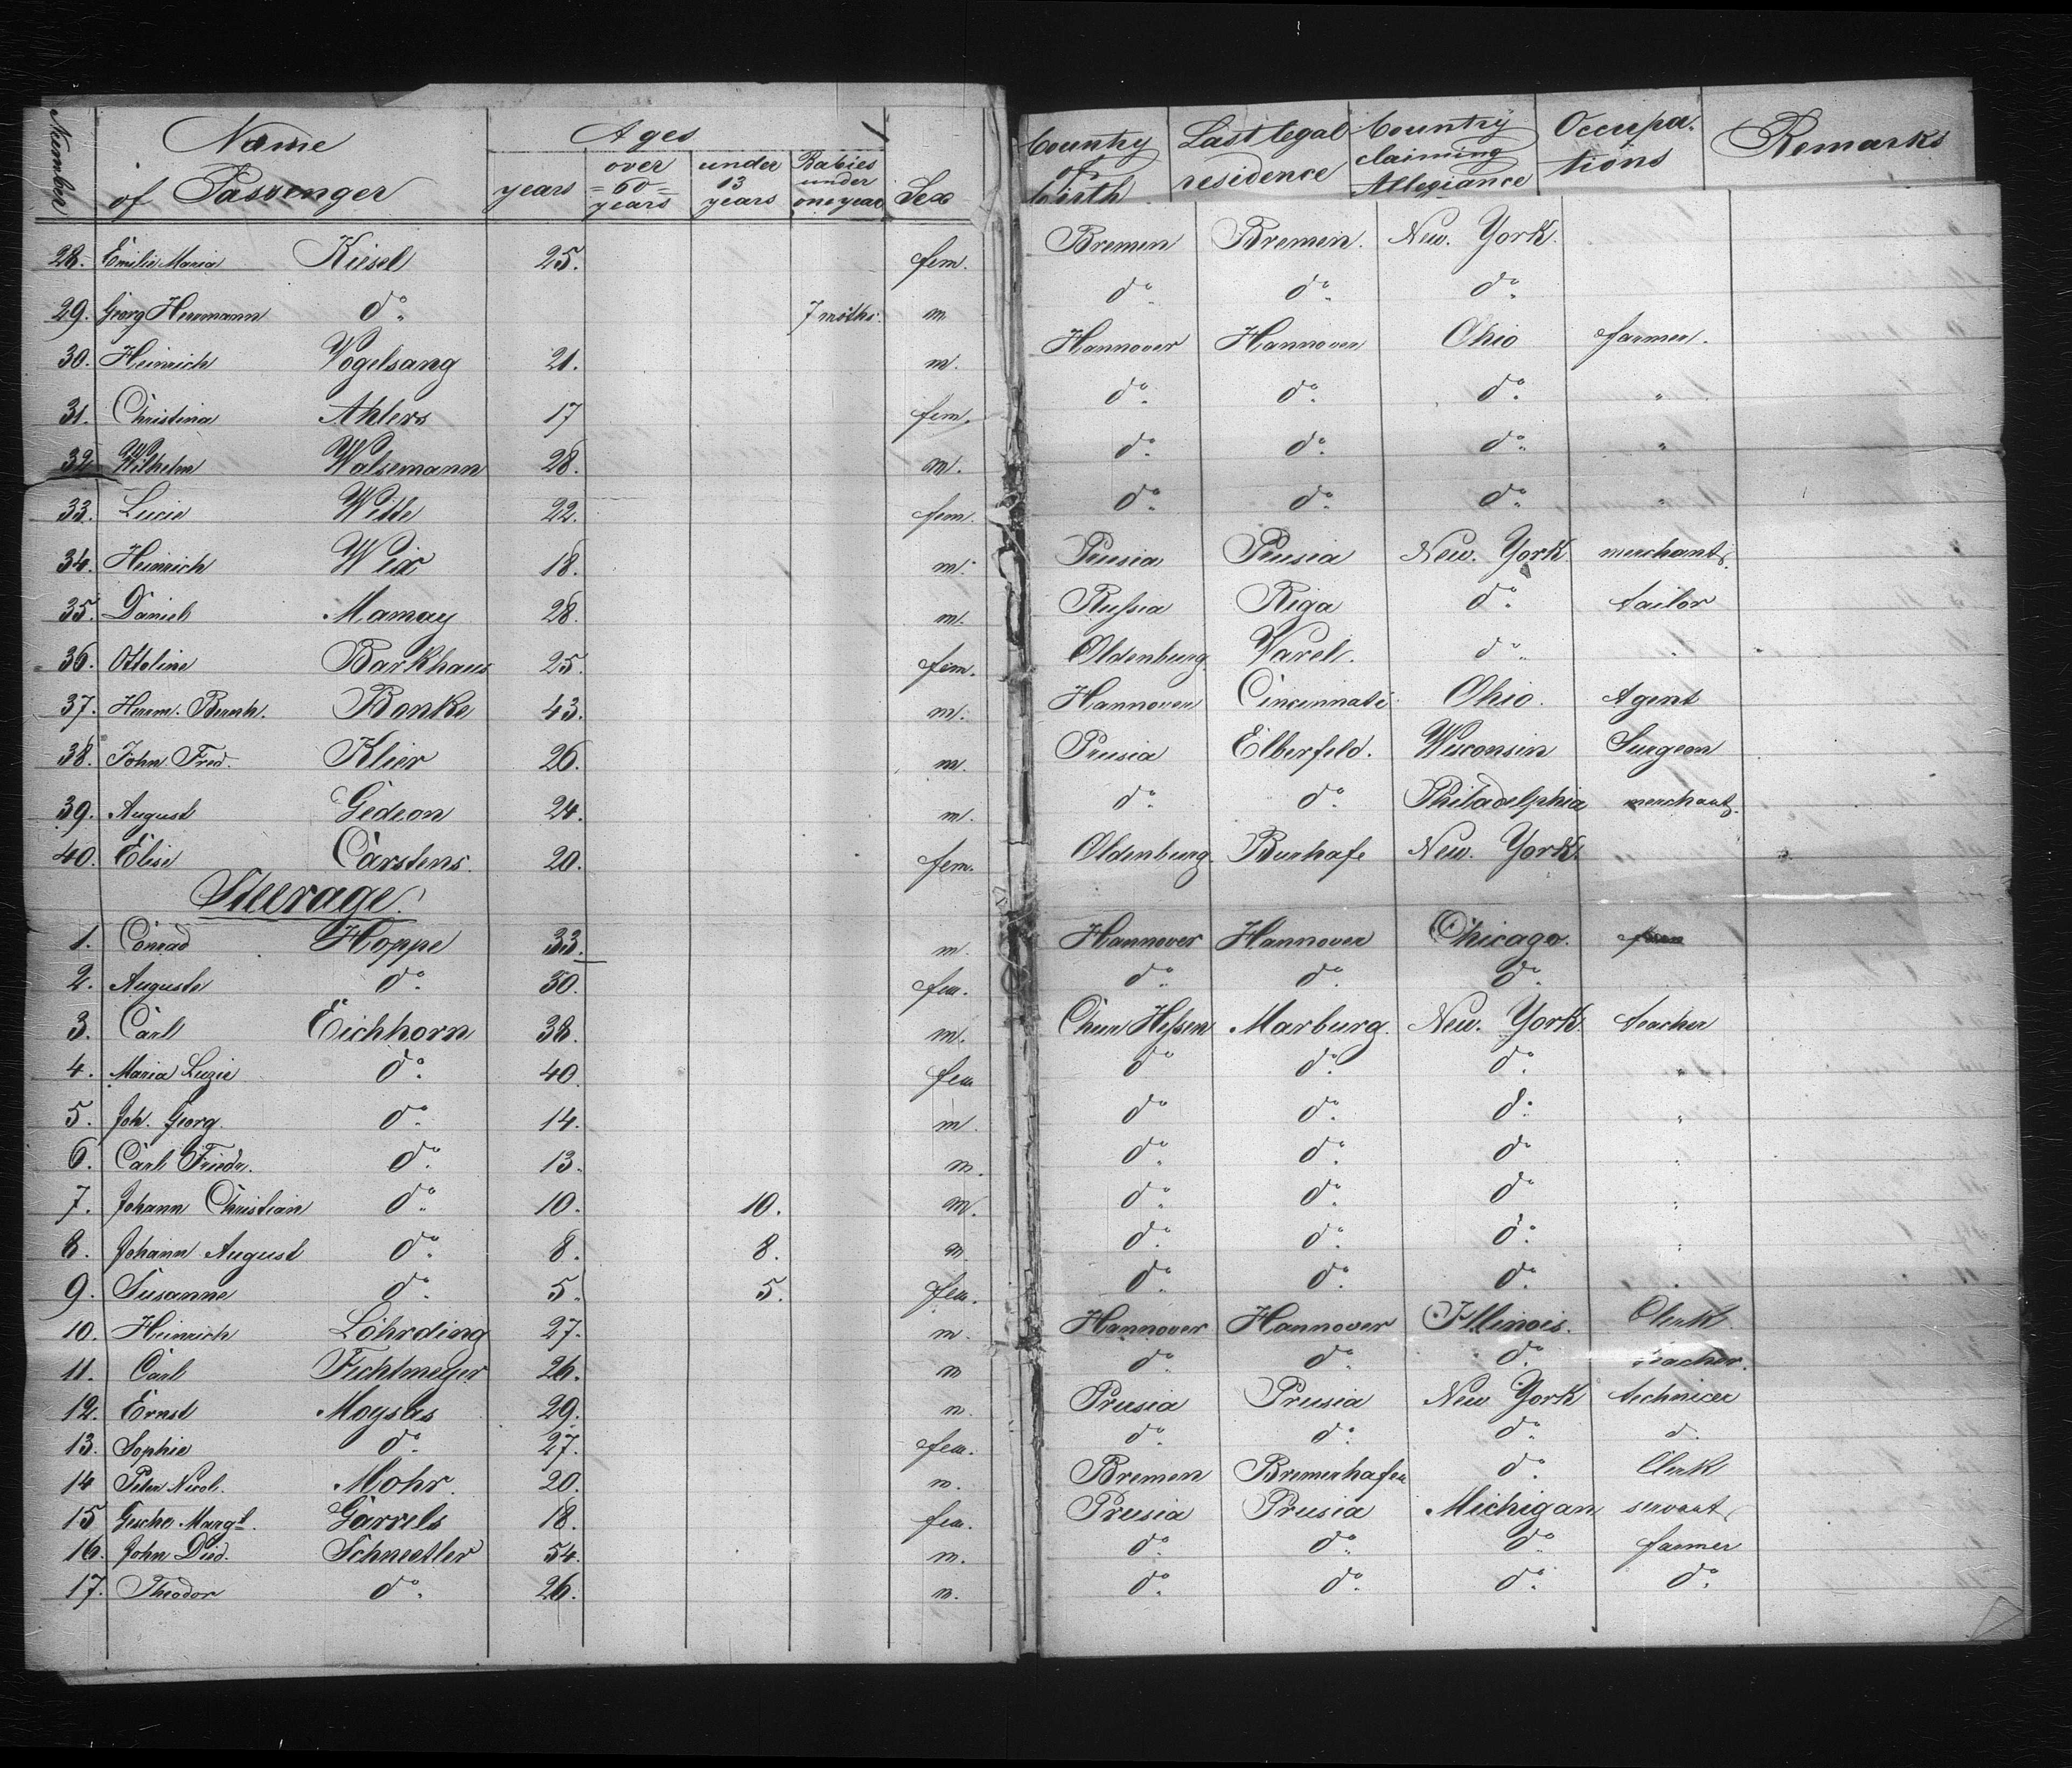 Number Name of Passenger Ages years over 60 years under 13 years Babies under one year Sex Country of birth Last legal residence Country claiming Allegiance Occupations Remarks
28. Emilie Maria Kiesel 25. fem. Bremen Bremen. New. York.
29. Georg Herrmann do. 7 moths. m do. do. do.
30. Heinrich Vogelsang 21. m. Hannover Hannover Ohio farmer.
31. Christina Ahlers 17 fem. do. do. do. "
32 Wilhelm Walsemann 28. m. do. do. do. "
33. Lucie Witte 22. fem. do. do. do. "
34. Heinrich Wix 18. m. Prusia Prusia New. York merchant.
35. Daniel Mamay 28. m. Russia Riga do. tailor
36. Ottoline Barkhaus 25. fem. Oldenburg Varel. do. "
37. Herrm. Bernh. Bonke 43. m. Hannover Cincinnati Ohio. Agent
38. John Fred. Klier 26. m. Prusia Elberfeld. Wisconsin Surgeon
39. August Gedeon 24. m. do. do. Philadelphia merchant.
40. Elise Carstens. 20. fem. Oldenburg Burhafe New. York.
Steerage.
1. Conrad Hoppe 33. m. Hannover Hannover Chicago.
2. Auguste do. 30. fem. do. do. do.
3. Carl Eichhorn 38. m. Chur Hessen Marburg. New. York teacher
4. Maria Luzie do. 40. fem do. do. do. "
5. Joh. Georg. do. 14. m. do. do. do. "
6. Carl Friedr. do. 13. m. do. do. do. "
7. Johann Christian do. 10. 10. m. do. do. do. "
8. Johann August do. 8. 8. m do. do. do. "
9. Susanne do. 5. 5. fem. do. do. do. "
10. Heinrich Löhrding 27. m. Hannover Hannover Illinois. Clerk
11. Carl Fichtmeyer 26. m do. do. do. teacher.
12. Ernst Moysas 29. m. Prusia Prusia New York technicer
13. Sophie do. 27. fem. do. do. do. d.
14 Peter Nicol. Mohr. 20. m. Bremen Bremerhafen do. Clerk
15 Gesche Margt. Garrels 18. fem. Prusia Prusia Michigan servant
16. John Died. Schneetler 54. m. do. do. do. farmer
17. Theodor do. 26. m. do. do. do. do.